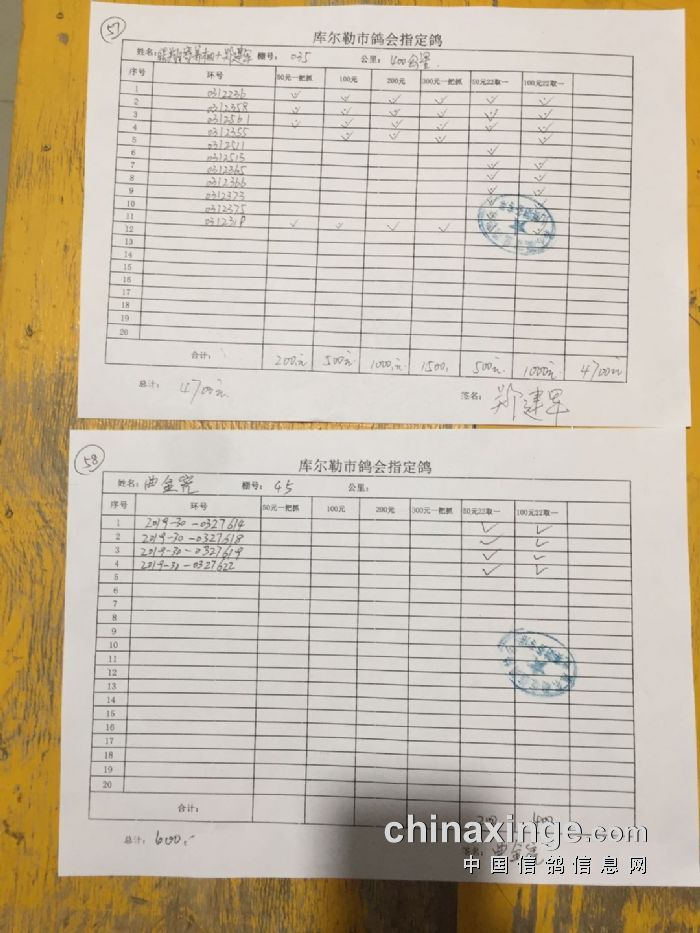 57
库尔勒市鸽会指定鸽
姓名: 棚号: 035 公里: 400公里
序号 环号 50元一把抓 100元 200元 300元一把抓 50元22取一 100元22取一
1 0312236 ✓ ✓ ✓ ✓ ✓ ✓
2 0312358 ✓ ✓ ✓ ✓ ✓ ✓
3 0312561 ✓ ✓ ✓ ✓ ✓ ✓
4 0312355 ✓ ✓ ✓ ✓
5 0312511
6 0312513 ✓
7 0312365 ✓ ✓
8 0312366 ✓ ✓
9 0312373 ✓
10 0312375
11 0312318
12 ✓ ✓ ✓ ✓
13
14
15
16
17
18
19
20
合计: 200元 500元 1000元 1500, 500元 1000元 4700元
总计: 4700元 签名: 郑建军
58
库尔勒市鸽会指定鸽
姓名: 曲金亮 棚号: 45 公里:
序号 环号 50元一把抓 100元 200元 300元一把抓 50元22取一 100元22取一
1 2019-30-0327614 ✓ ✓
2 2019-30-0327618 ✓ ✓
3 2019-30-0327619 ✓ ✓
4 2019-30-0327622 ✓ ✓
5
6
7
8
9
10
11
12
13
14
15
16
17
18
19
20
合计: 200 400
总计: 600.- 签名: 曲金亮
chinaxinge.com
中国信鸽信息网